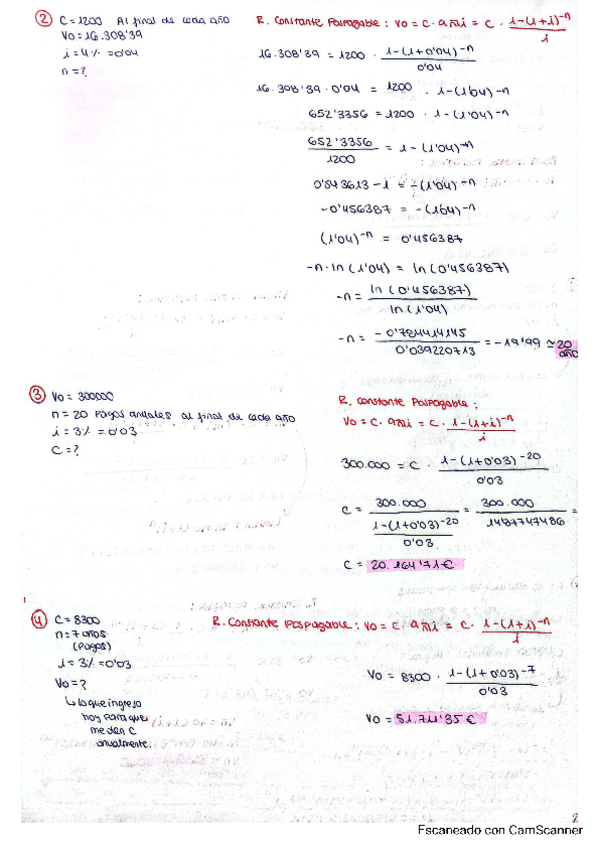 ② C = 1200 Al final de cada año
Vo = 16.308'39
i = 4% = 0'04
n = ?
R. Constante Pospagable: Vo = C · an̄i = C · 1-(1+i)^-n / i
16.308'39 = 1200 · 1-(1+0'04)^-n / 0'04
16.308'39 · 0'04 = 1200 · 1-(1'04)^-n
652'3356 = 1200 · 1-(1'04)^-n
652'3356 / 1200 = 1-(1'04)^-n
0'543613 - 1 = -(1'04)^-n
-0'456387 = -(1'04)^-n
(1'04)^-n = 0'456387
-n · ln(1'04) = ln(0'456387)
-n = ln(0'456387) / ln(1'04)
-n = -0'784414145 / 0'039220713 = -19'99 ≃ 20 año
③ Vo = 300.000
n = 20 Pagos anuales al final de cada año
i = 3% = 0'03
C = ?
R. Constante Pospagable:
Vo = C · an̄i = C · 1-(1+i)^-n / i
300.000 = C · 1-(1+0'03)^-20 / 0'03
C = 300.000 / 1-(1+0'03)^-20 / 0'03 = 300.000 / 14'877747486 =
C = 20.164'71€
④ C = 8300
n = 7 años
(Pagos)
i = 3% = 0'03
Vo = ?
↳ lo que ingreso
hoy para que
me den C
anualmente.
R. Constante Pospagable: Vo = C · an̄i = C · 1-(1+i)^-n / i
Vo = 8300 · 1-(1+0'03)^-7 / 0'03
Vo = 51.711'35€
2
Escaneado con CamScanner